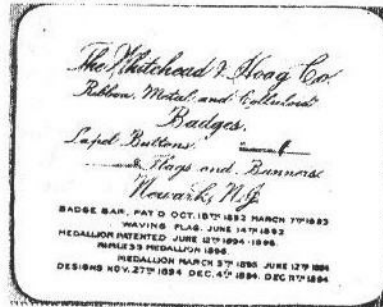 The Whitehead & Hoag Co.
Ribbon, Metal and Celluloid
Badges.
Lapel Buttons.
Flags and Banners
Newark, N.J.
BADGE BAR, PAT'D OCT. 18TH 1892 MARCH 7TH 1893
WAVING FLAG. JUNE 14TH 1892
MEDALLION PATENTED JUNE 12TH 1894-1896.
RIMLESS MEDALLION 1896.
MEDALLION MARCH 5TH 1895 JUNE 12TH 1894
DESIGNS NOV. 27TH 1894 DEC. 4TH 1894. DEC 11TH 1894